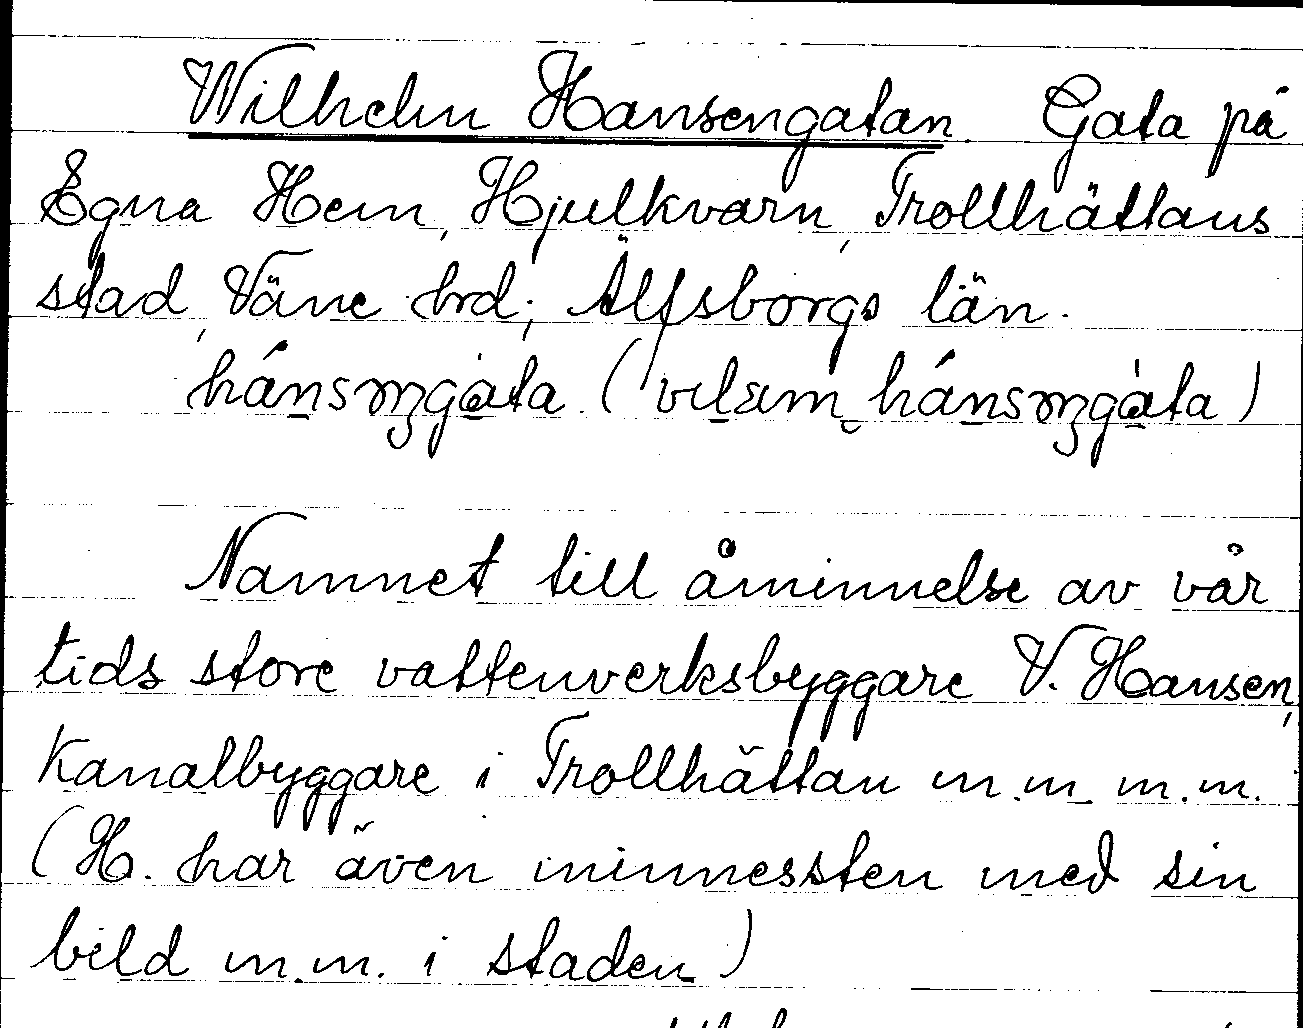 Wilhelm Hansengatan. Gata på
Egna Hem, Hjulkvarn, Trollhättans
stad, Väne hrd; Älfsborgs län.
Namnet till åminnelse av vår
tids store vattenverksbyggare V. Hansen,
Kanalbyggare i Trollhättan m.m. m.m.
(H. har även minnessten med sin
bild m.m. i staden)